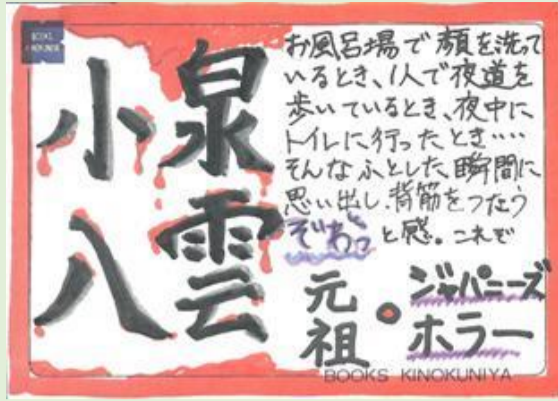 BOOKS
KINOKUNIYA
小泉
八雲
お風呂場で顔を洗って
いるとき、1人で夜道を
歩いているとき、夜中に
トイレに行ったとき……
そんなふとした瞬間に
思い出し、背筋をつたう
ぞわっと感。これぞ
元祖・ジャパニーズ
ホラー
BOOKS KINOKUNIYA